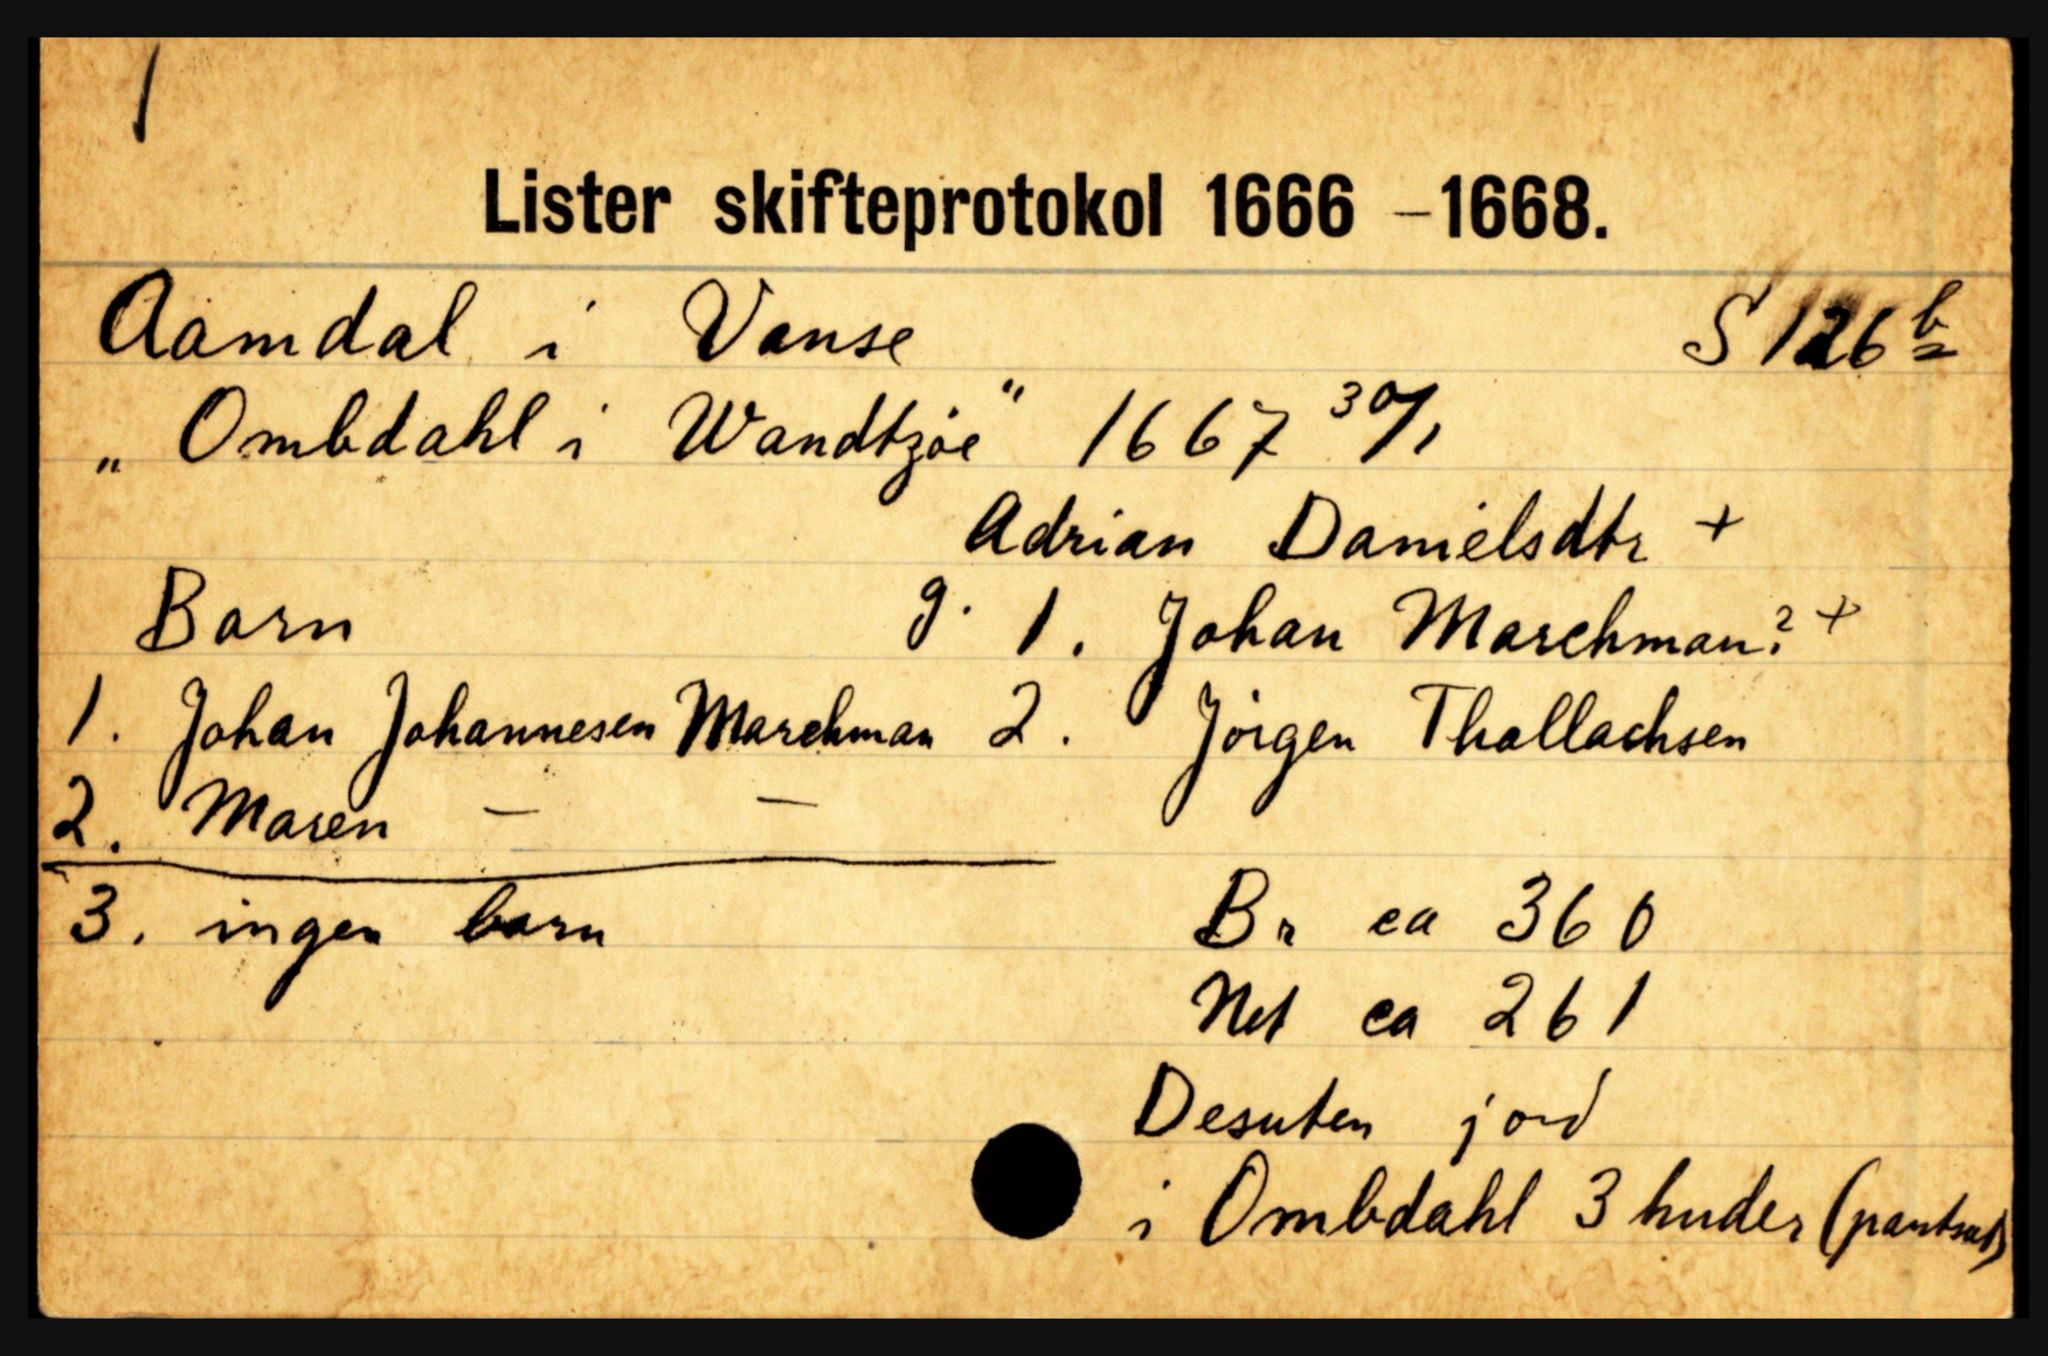 Lister skifteprotokol 1666 – 1668.
Aamdal i Vanse S 126 b
„ Ombdahl i Wandtzøe " 1667 30/1
Adrian Danielsdtr +
Barn g. 1. Johan Marchman? +
1. Johan Johannesen Marchman 2. Jörgen Thollachsen
2. Maren — —
3. ingen barn Br ca 360
Net ca 261
Desuten jord
i Ombdahl 3 huder (pantsat)